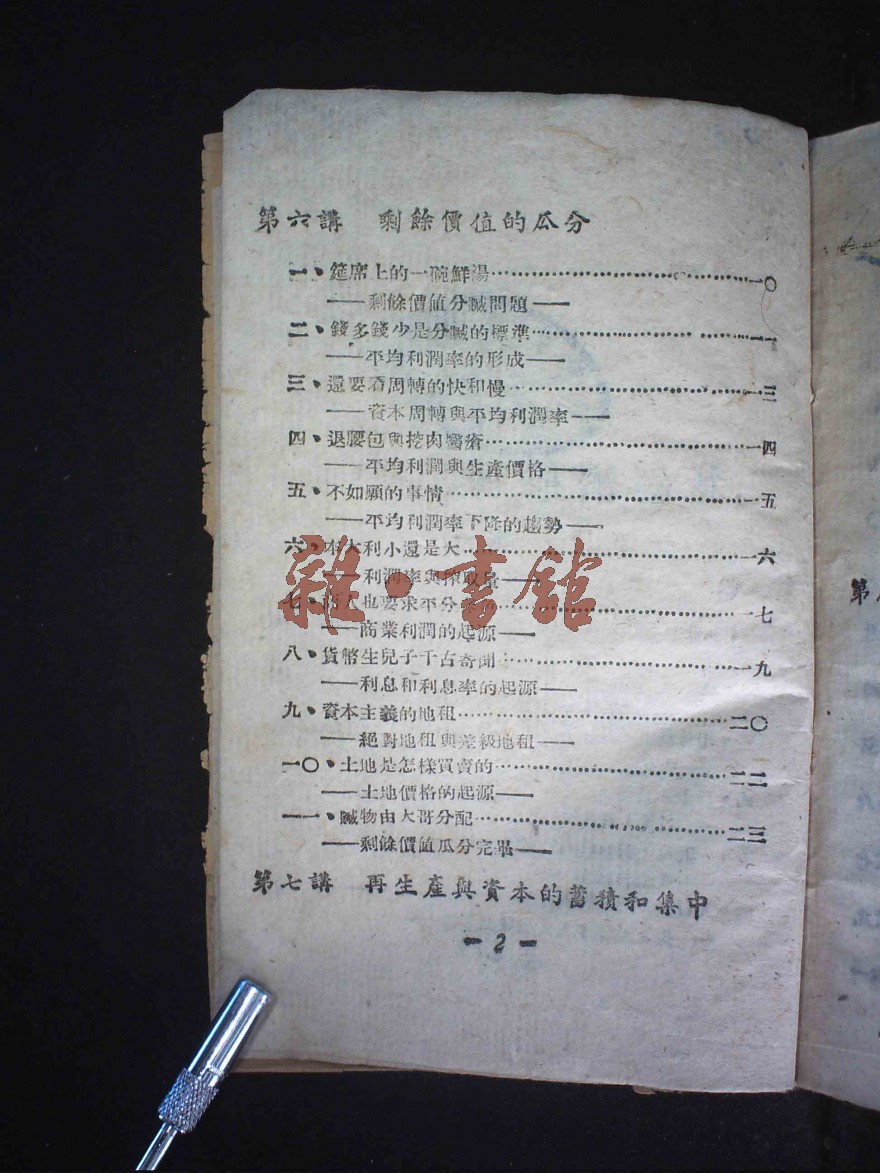 第六講　剩餘價值的瓜分
一、筵席上的一碗鮮湯……一〇
——剩餘價值分贓問題——
二、錢多錢少是分贓的標準……一一
——平均利潤率的形成——
三、還要看周轉的快和慢……一三
——資本周轉與平均利潤率——
四、退腰包與挖肉醫瘡……一四
——平均利潤與生產價格——
五、不如願的事情……一五
——平均利潤率下降的趨勢——
六、本大利小還是大……一六
——利潤率與搾取量——
七、商人也要求平分……一七
——商業利潤的起源——
八、貨幣生兒子千古奇聞……一九
——利息和利息率的起源——
九、資本主義的地租……二〇
——絕對地租與差級地租——
一〇、土地是怎樣買賣的……二二
——土地價格的起源——
一一、贓物由大哥分配……二三
——剩餘價值瓜分完畢——
第七講　再生產與資本的蓄積和集中
－2－
雜·書館
第